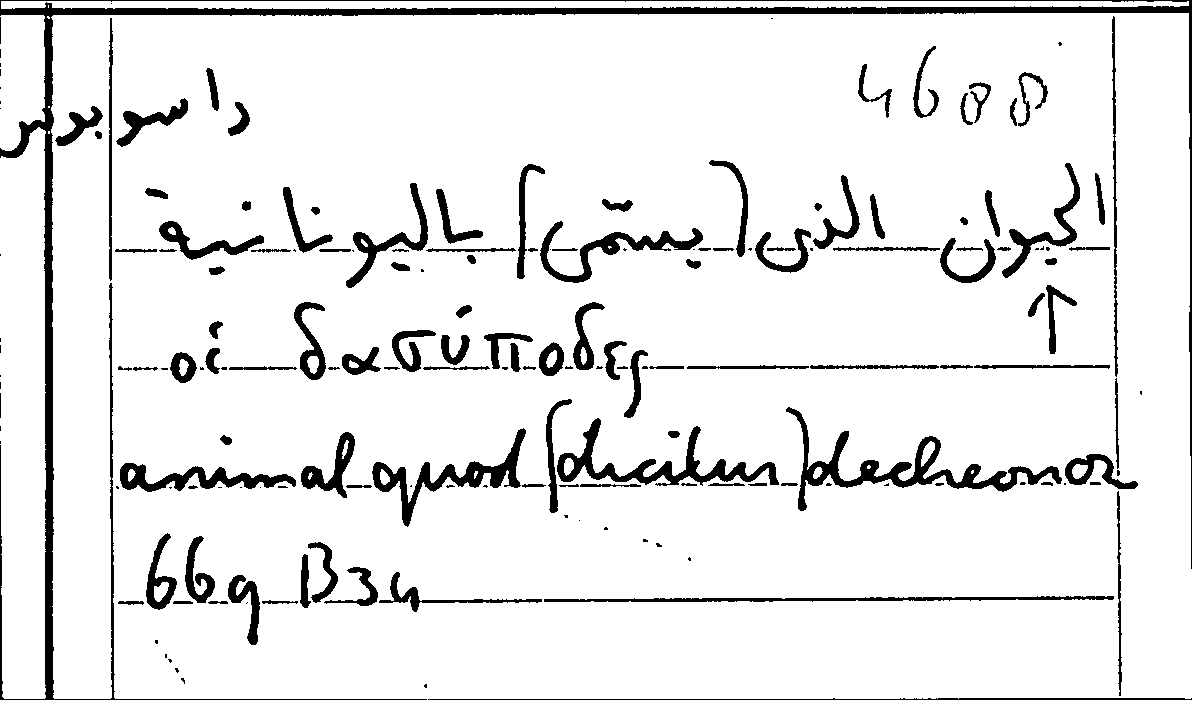 4688
داسوبوس
الحيوان الذى (يسمّى) باليونانية
↑
οἱ δασύποδες
animal quod (dicitur) decheonoz
669 B34